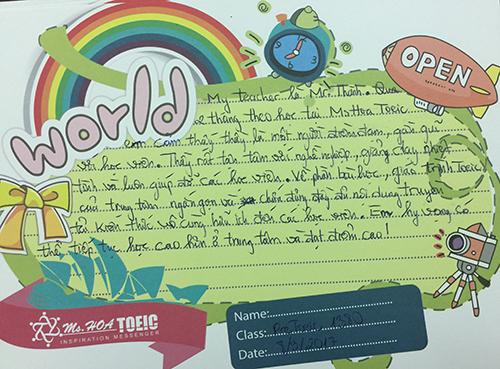 world
OPEN
My teacher là Mr. Thành. Qua
tháng theo học tại Ms Hoa Toeic
em cảm thấy thầy là một người điềm đạm, gần gũi
với học viên. Thầy rất tận tâm với nghề nghiệp, giảng dạy nhiệt
tình và luôn giúp đỡ các học viên. Về phần bài học, giáo trình Toeic
của trung tâm ngắn gọn và chân đủ nội dung truyền
tải kiến thức vô cùng hữu ích đến các học viên. Em hy vọng có
thể tiếp tục học cao hơn ở trung tâm và đạt điểm cao!
Ms. HOA TOEIC
INSPIRATION MESSENGER
Name:
Class: Pre Toeic
Date: /3/2017